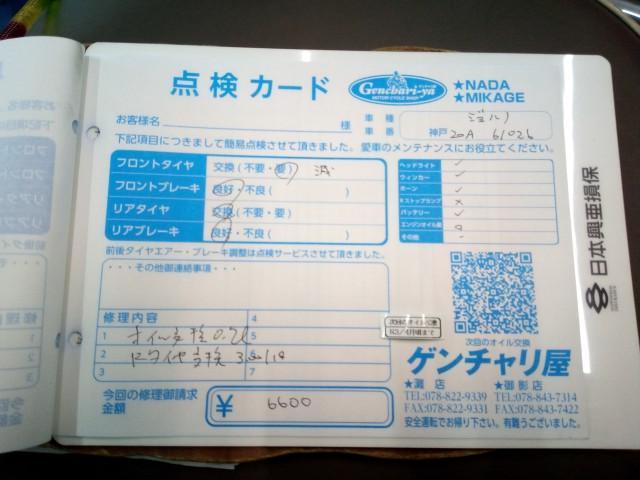 点検カード
Genchari-ya
MOTOR CYCLE SHOP
★NADA
★MIKAGE
お客様名 様
車種 ジョルノ
車番 神戸 20A 61026
下記項目につきまして簡易点検させて頂きました。愛車のメンテナンスにお役立てください。
フロントタイヤ 交換(不要・要) 減
フロントブレーキ 良好・不良( )
リアタイヤ 交換(不要・要)
リアブレーキ 良好・不良( )
ヘッドライト ✓
ウィンカー ✓
ホーン ✓
Rストップランプ ×
バッテリー ✓
エンジンオイル量
その他
前後タイヤエアー・ブレーキ調整は点検サービスさせて頂きました。
・・・その他御連絡事項・・・
修理内容
1 オイル交換 0.7L
2
3
4
5
7
次回のオイル交換
R3/4月頃まで
次回のオイル交換
ゲンチャリ屋
★灘店 ★御影店
TEL:078-822-9339 TEL:078-843-7314
FAX:078-822-9331 FAX:078-843-7422
安全運転でお帰り下さい。有難うございました。
今回の修理御請求金額 ¥ 6600
日本興亜損保